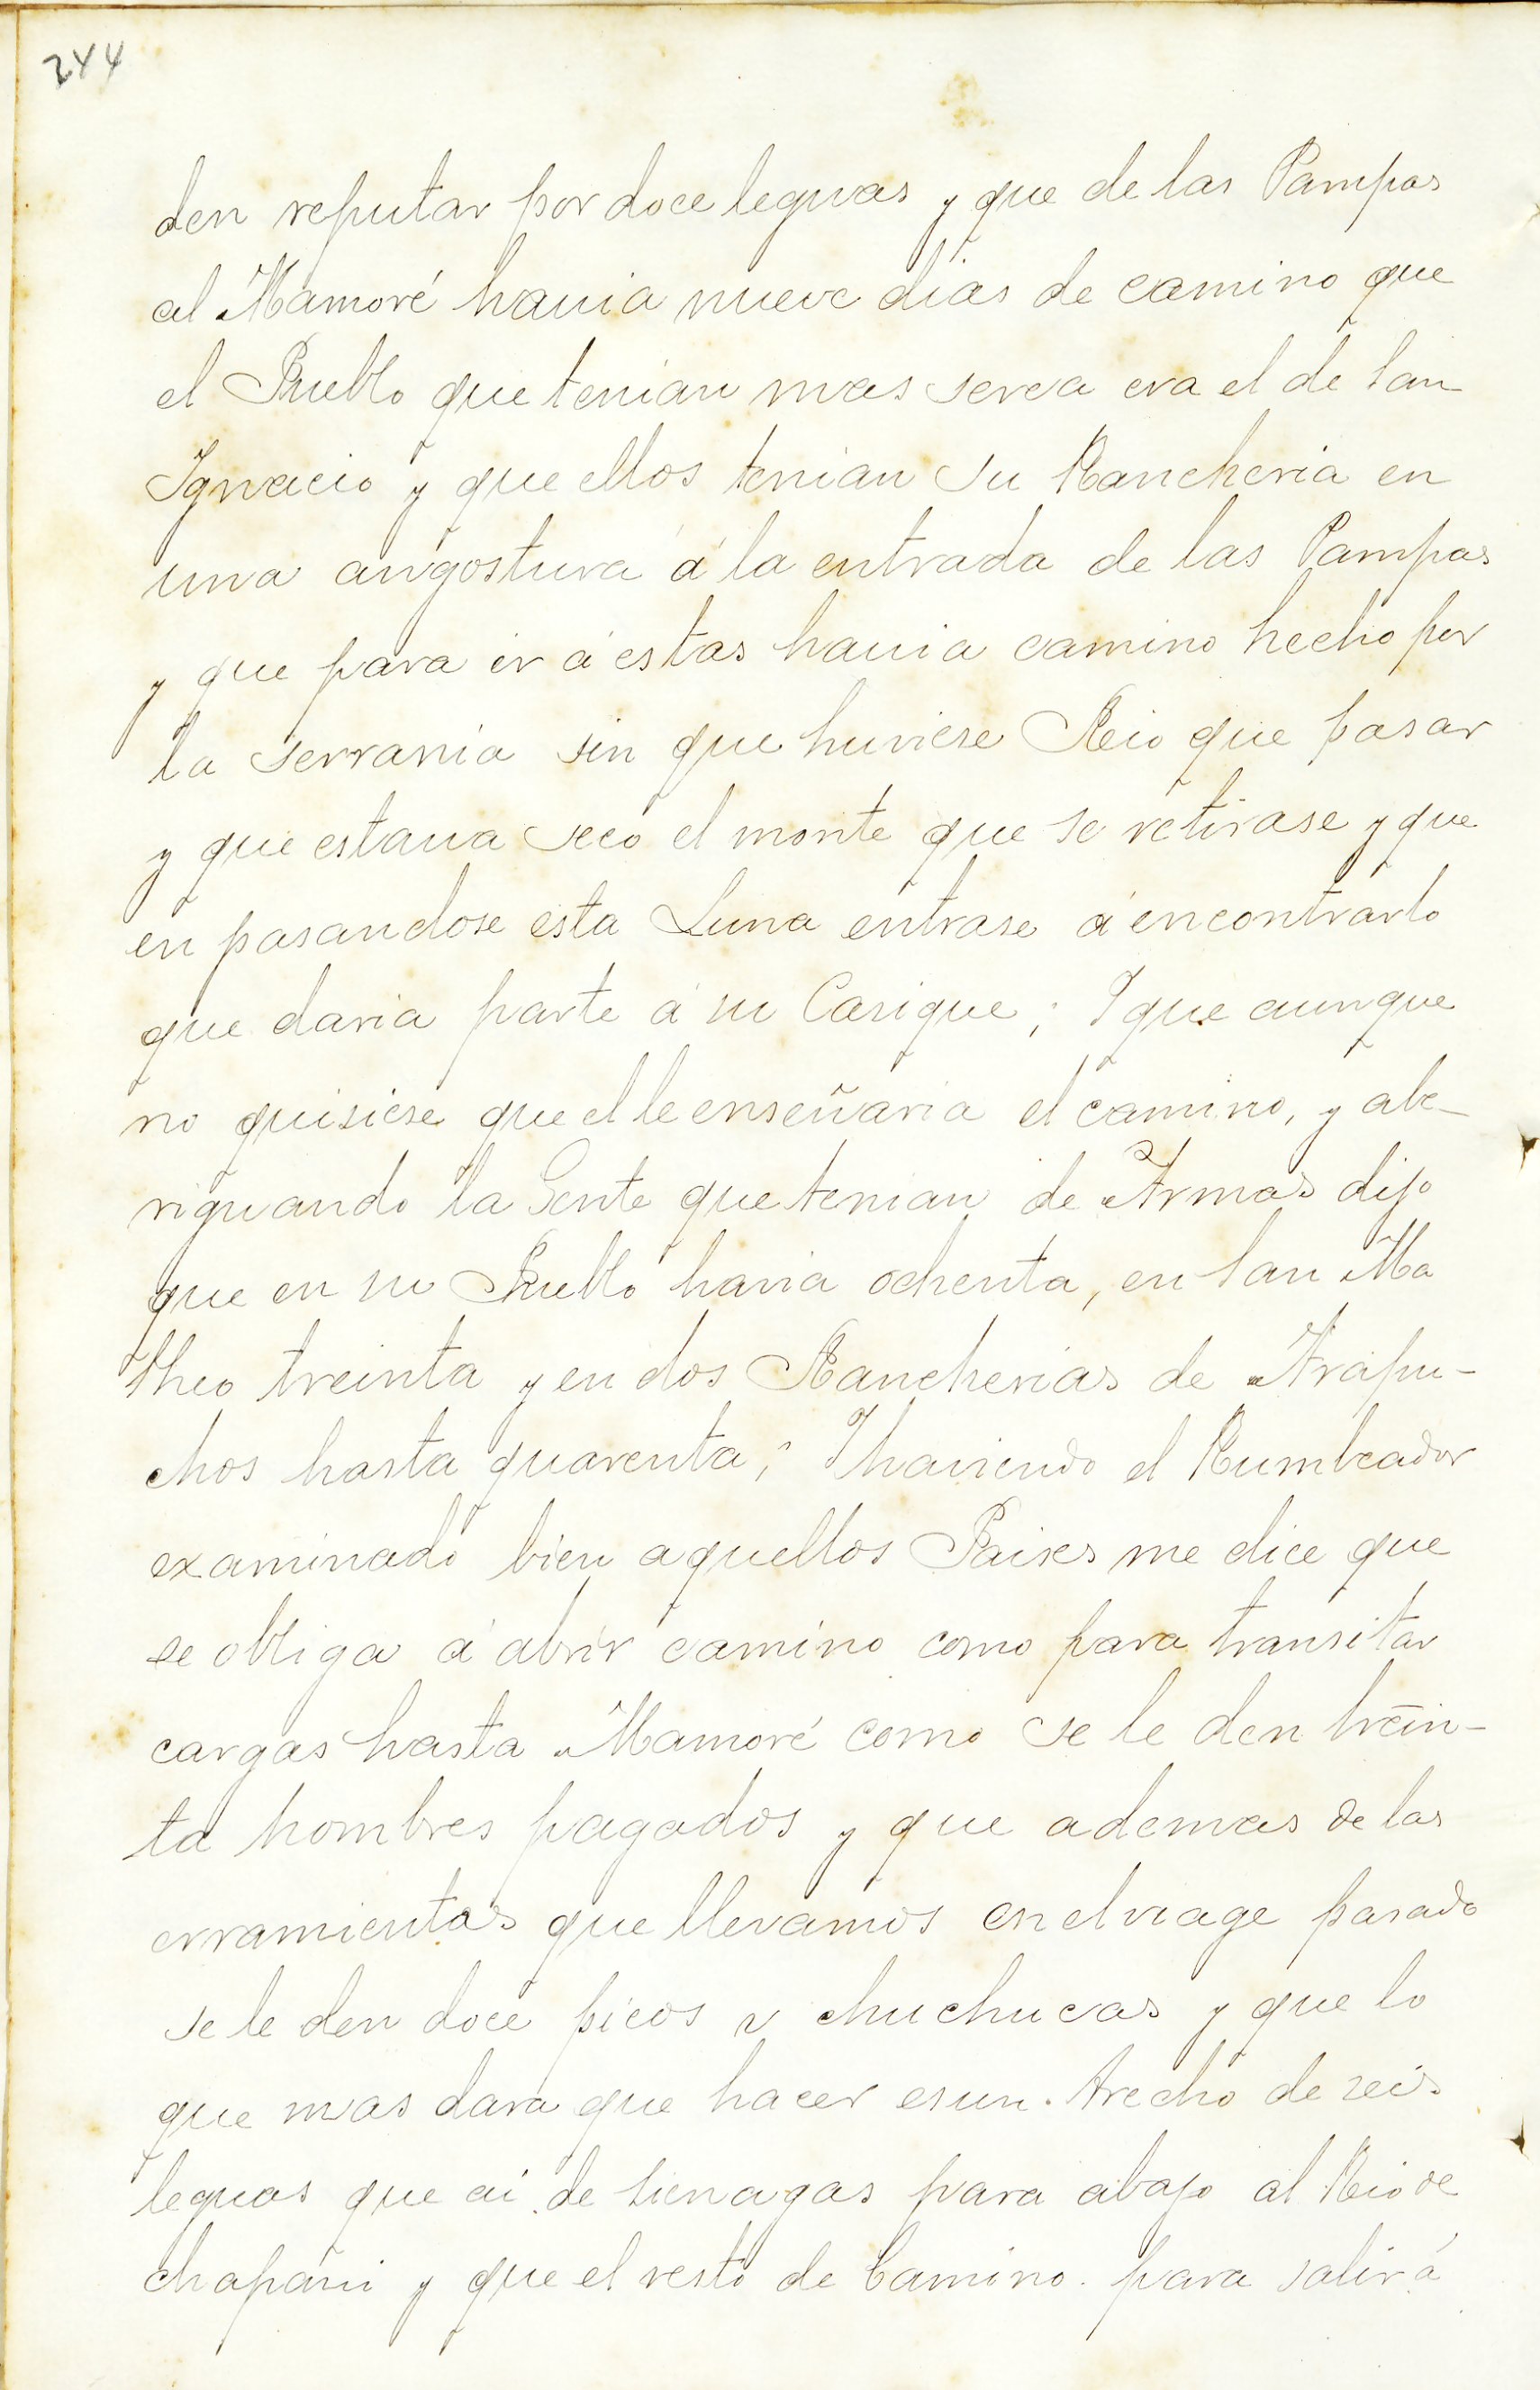 244
den reputar por doce leguas y que de las Pampas
al Mamoré hauia nueve dias de camino que
el Pueblo que tenian mas serca era el de San
Ignacio y que ellos tenian su Rancheria en
una angostura á la entrada de las Pampas
y que para ir á estas hauia camino hecho por
la serrania sin que huviese Rio que pasar
y que estaua seco el monte que se retirase y que
en pasandose esta Luna entrase á encontrarlo
que daria parte á su Casique; Y que aunque
no quisiese que el le enseñaria el camino, y abe-
riguando la Gente que tenian de Armas dijo
que en su Pueblo havia ochenta, en San Ma
theo treinta y en dos Rancherias de Arapu-
chos hasta quarenta; Y haviendo el Rumbeador
examinado bien aquellos Paises me dice que
se obliga á abrir camino como para transitar
cargas hasta Mamoré como se le den trein-
ta hombres pagados y que ademas de las
erramientas que llevamos en el viage pasado
se le den doce picos y chuchucas y que lo
que mas dara que hacer es un trecho de seis
leguas que ai de sienagas para abajo al Rio de
chapari y que el resto de Camino para salir á